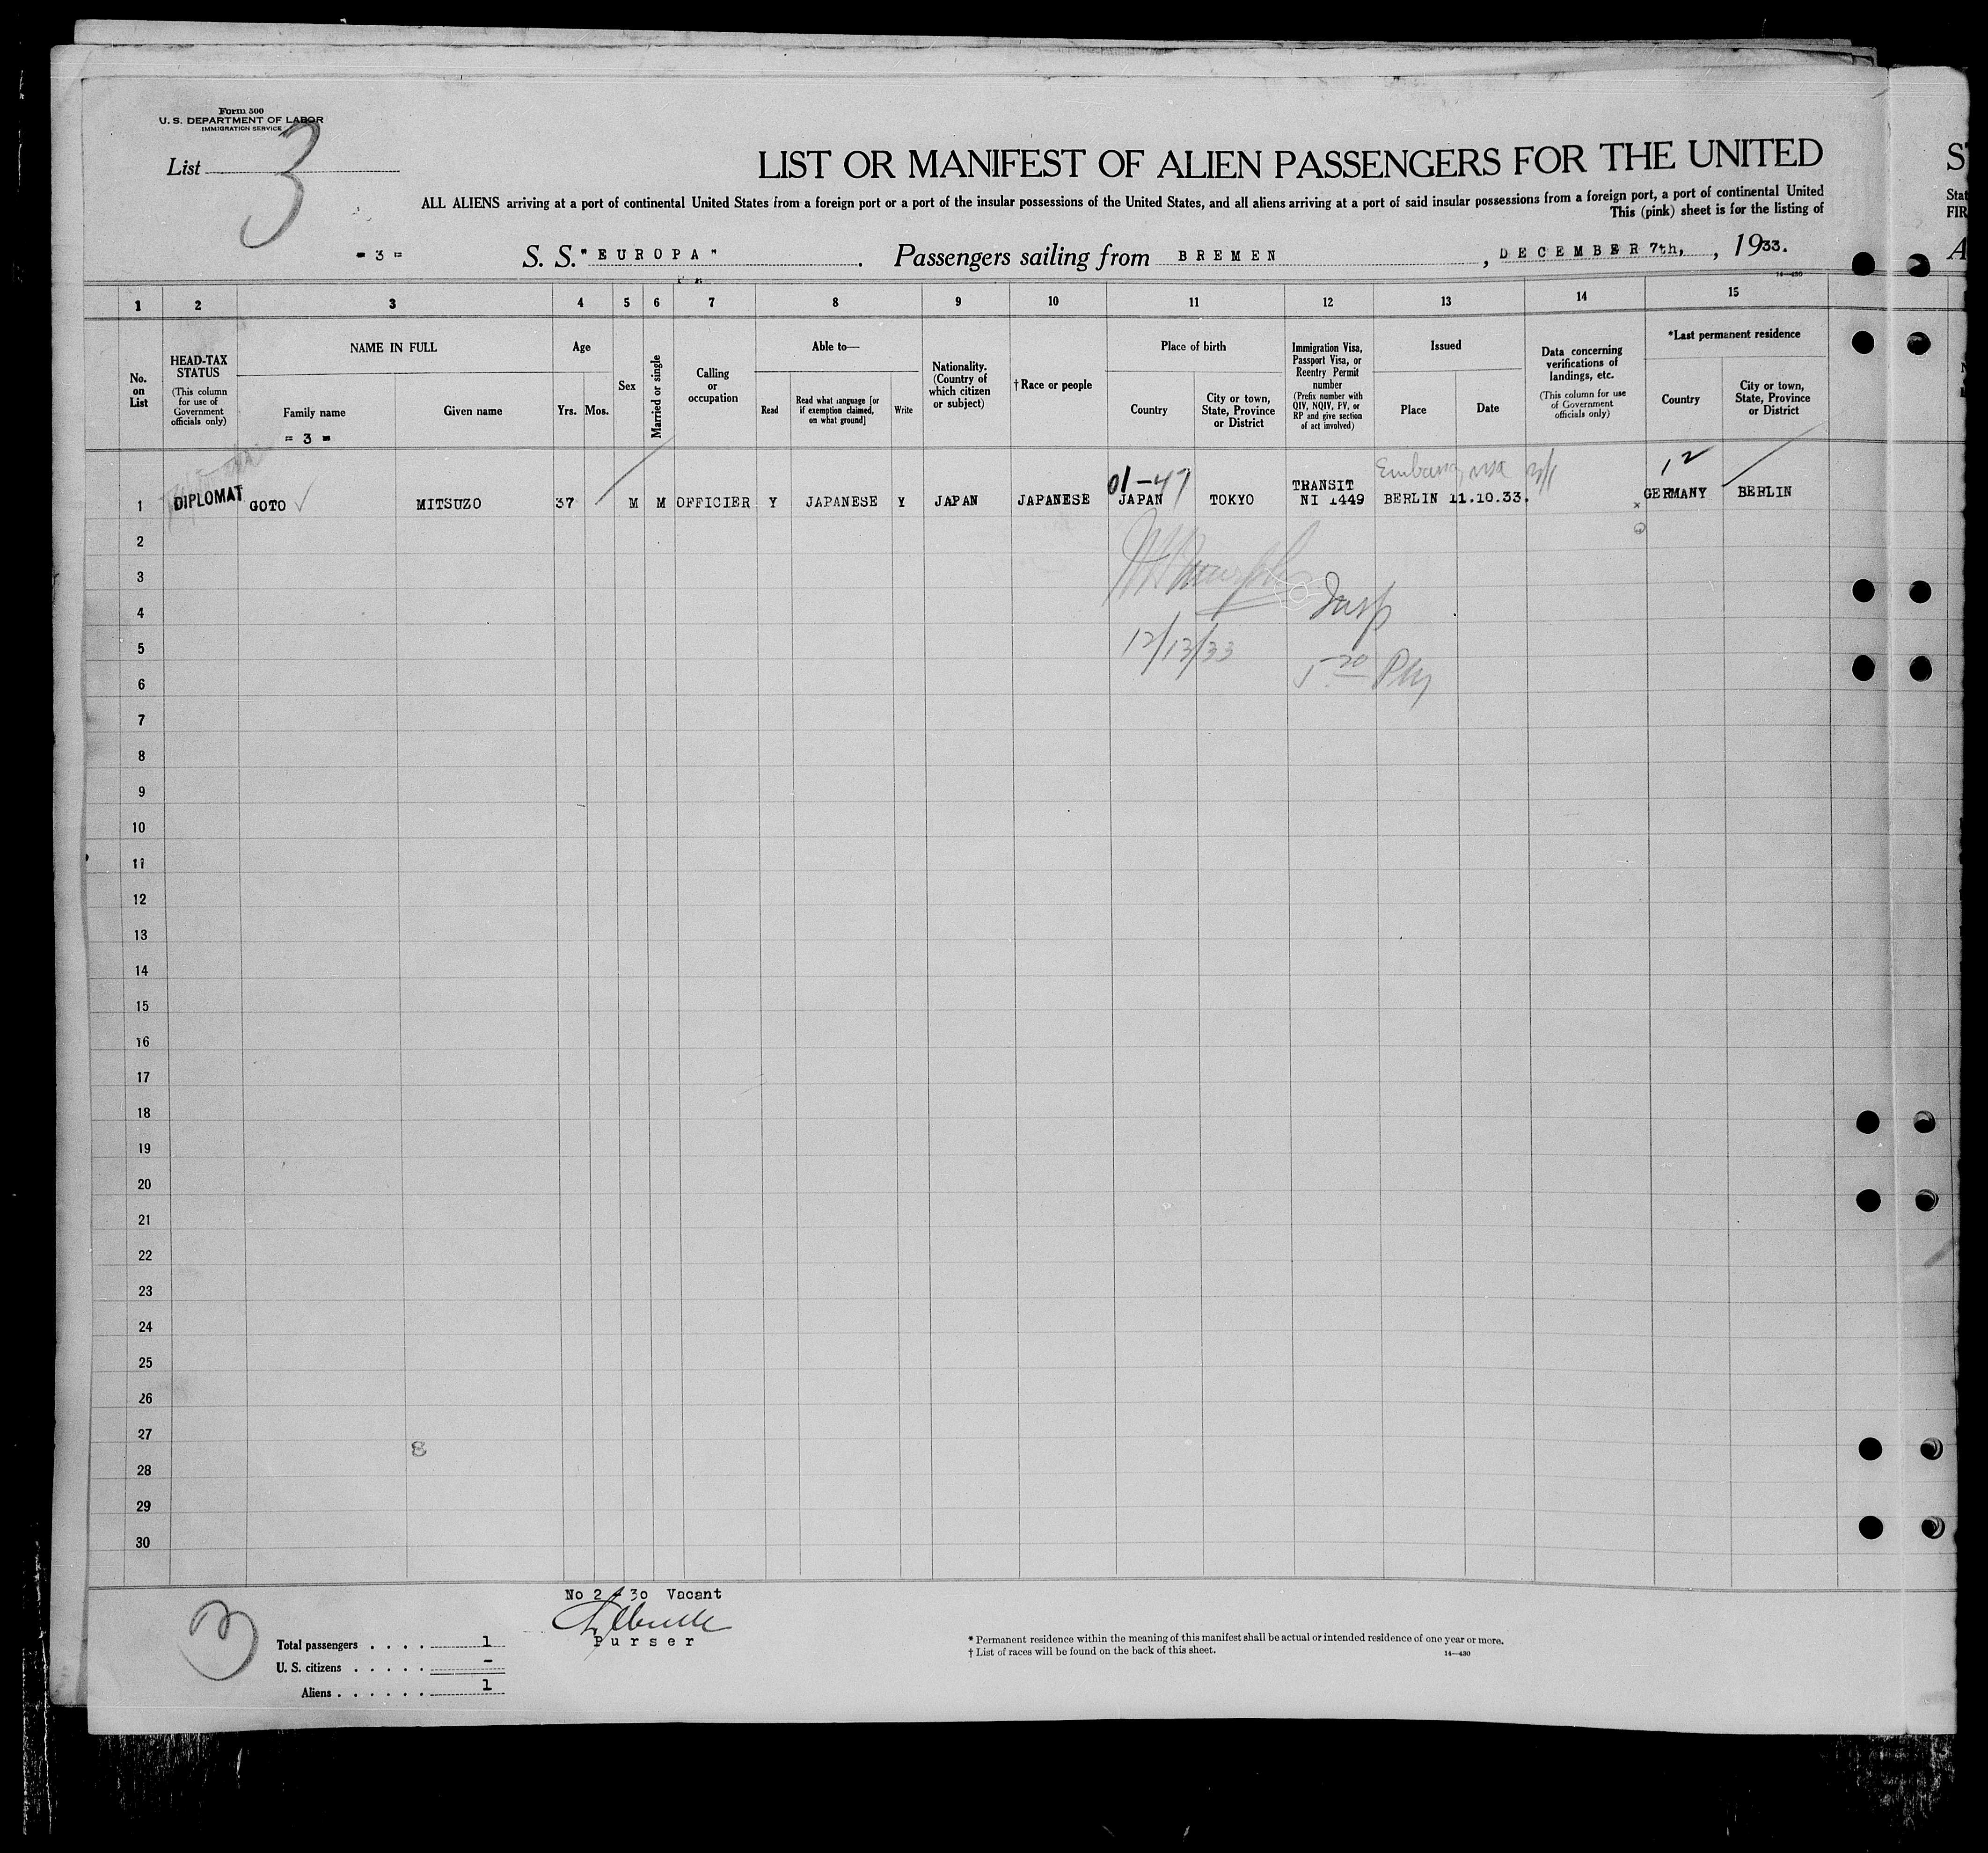 Form 500
U. S. DEPARTMENT OF LABOR
IMMIGRATION SERVICE
List 3
LIST OR MANIFEST OF ALIEN PASSENGERS FOR THE UNITED
ALL ALIENS arriving at a port of continental United States from a foreign port or a port of the insular possessions of the United States, and all aliens arriving at a port of said insular possessions from a foreign port, a port of continental United
This (pink) sheet is for the listing of
= 3 = S. S. "EUROPA". Passengers sailing from BREMEN, DECEMBER 7th, , 1933.
14—430
1 2 3 4 5 6 7 8 9 10 11 12 13 14 15
No. on List
HEAD-TAX STATUS
(This column for use of Government officials only)
NAME IN FULL
Family name
Given name
= 3 =
Age
Yrs. Mos.
Sex
Married or single
Calling or occupation
Able to—
Read
Read what language [or if exemption claimed, on what ground]
Write
Nationality. (Country of which citizen or subject)
† Race or people
Place of birth
Country
City or town, State, Province or District
Immigration Visa, Passport Visa, or Reentry Permit number
(Prefix number with QIV, NQIV, PV, or RP and give section of act involved)
Issued
Place
Date
Data concerning verifications of landings, etc.
(This column for use of Government officials only)
*Last permanent residence
Country
City or town, State, Province or District
01-47 Embassy visa 12
TRANSIT
1 DIPLOMAT GOTO ✓ MITSUZO 37 M M OFFICIER Y JAPANESE Y JAPAN JAPANESE JAPAN TOKYO NI 1449 BERLIN 11.10.33. x GERMANY BERLIN
2
3
4 Insp
5 12/13/33
6 5 20 PM
7
8
9
10
11
12
13
14
15
16
17
18
19
20
21
22
23
24
25
26
27 8
28
29
30
No 2 - 30 Vacant
Purser
3
Total passengers . . . . 1
U. S. citizens . . . . . -
Aliens . . . . . . 1
* Permanent residence within the meaning of this manifest shall be actual or intended residence of one year or more.
† List of races will be found on the back of this sheet.
14—430